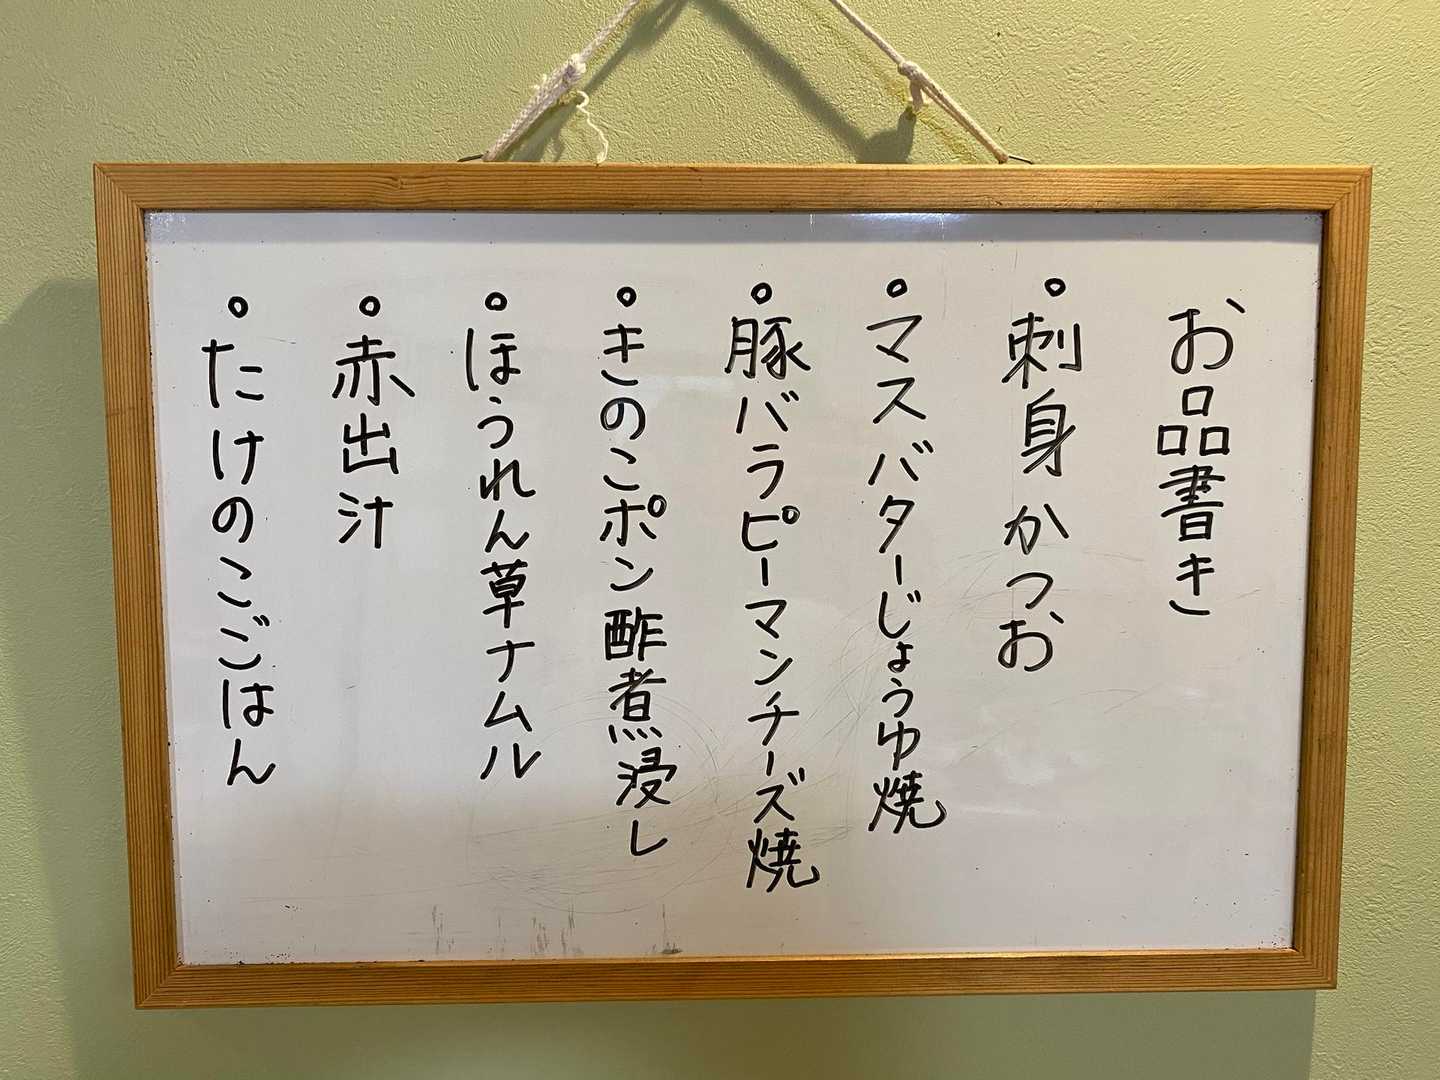 お品書き
・刺身かつお
・マスバターじょうゆ焼
・豚バラピーマンチーズ焼
・きのこポン酢煮浸し
・ほうれん草ナムル
・赤出汁
・たけのこごはん